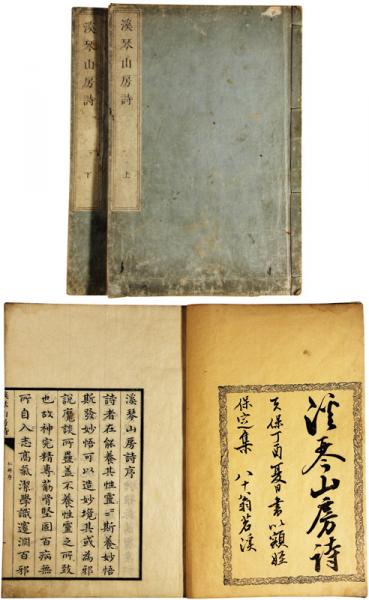 溪琴山房詩
上
溪琴山房詩
下
溪琴山房詩
天保丁酉夏日書以穎姪
保定集 八十翁茗溪
溪琴山房詩序
詩者在能養其性靈〻〻斯養妙悟
斯發妙悟可以造妙境其或為邪
説魔談所罹盖不養性靈之所致
也故神完精專筋骨堅固百病無
所自入志高氣潔學識邃淵百邪
溪琴山房詩